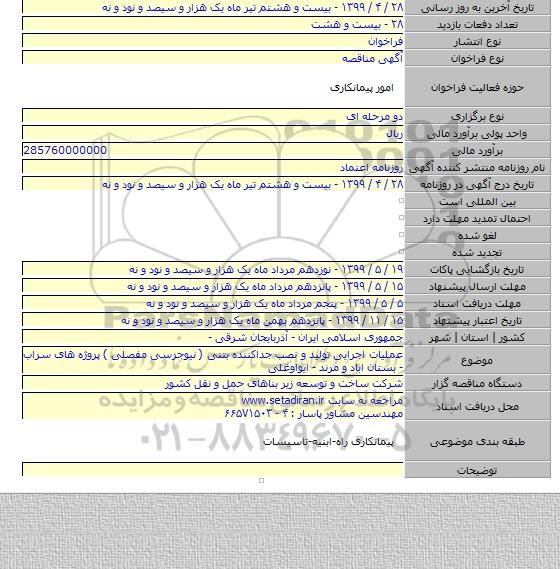 تاریخ آخرین به روز رسانی ۲۸ / ۴ / ۱۳۹۹ - بیست و هشتم تیر ماه یک هزار و سیصد و نود و نه
تعداد دفعات بازدید ۲۸ - بیست و هشت
نوع انتشار فراخوان
نوع فراخوان آگهی مناقصه
حوزه فعالیت فراخوان امور پیمانکاری
نوع برگزاری دو مرحله ای
واحد پولی برآورد مالی ریال
برآورد مالی 285760000000
نام روزنامه منتشر کننده آگهی روزنامه اعتماد
تاریخ درج آگهی در روزنامه ۲۸ / ۴ / ۱۳۹۹ - بیست و هشتم تیر ماه یک هزار و سیصد و نود و نه
بین المللی است
احتمال تمدید مهلت دارد
لغو شده
تجدید شده
تاریخ بازگشایی پاکات ۱۹ / ۵ / ۱۳۹۹ - نوزدهم مرداد ماه یک هزار و سیصد و نود و نه
مهلت ارسال پیشنهاد ۱۵ / ۵ / ۱۳۹۹ - پانزدهم مرداد ماه یک هزار و سیصد و نود و نه
مهلت دریافت اسناد ۵ / ۵ / ۱۳۹۹ - پنجم مرداد ماه یک هزار و سیصد و نود و نه
تاریخ اعتبار پیشنهاد ۱۵ / ۱۱ / ۱۳۹۹ - پانزدهم بهمن ماه یک هزار و سیصد و نود و نه
کشور | استان | شهر جمهوری اسلامی ایران - آذربایجان شرقی -
موضوع عملیات اجرایی تولید و نصب جداکننده بتنی ( نیوجرسی مفصلی ) پروژه های سراب
- بستان آباد و مرند - ایواوغلی
دستگاه مناقصه گزار شرکت ساخت و توسعه زیر بناهای حمل و نقل کشور
محل دریافت اسناد مراجعه به سایت www.setadiran.ir
مهندسین مشاور پاسار : ۴ - ۶۶۵۷۱۵۰۳
طبقه بندی موضوعی پیمانکاری راه-ابنیه-تاسیسات
توضیحات
۰۲۱-۸۸۳۴۹۶۷۰-۵